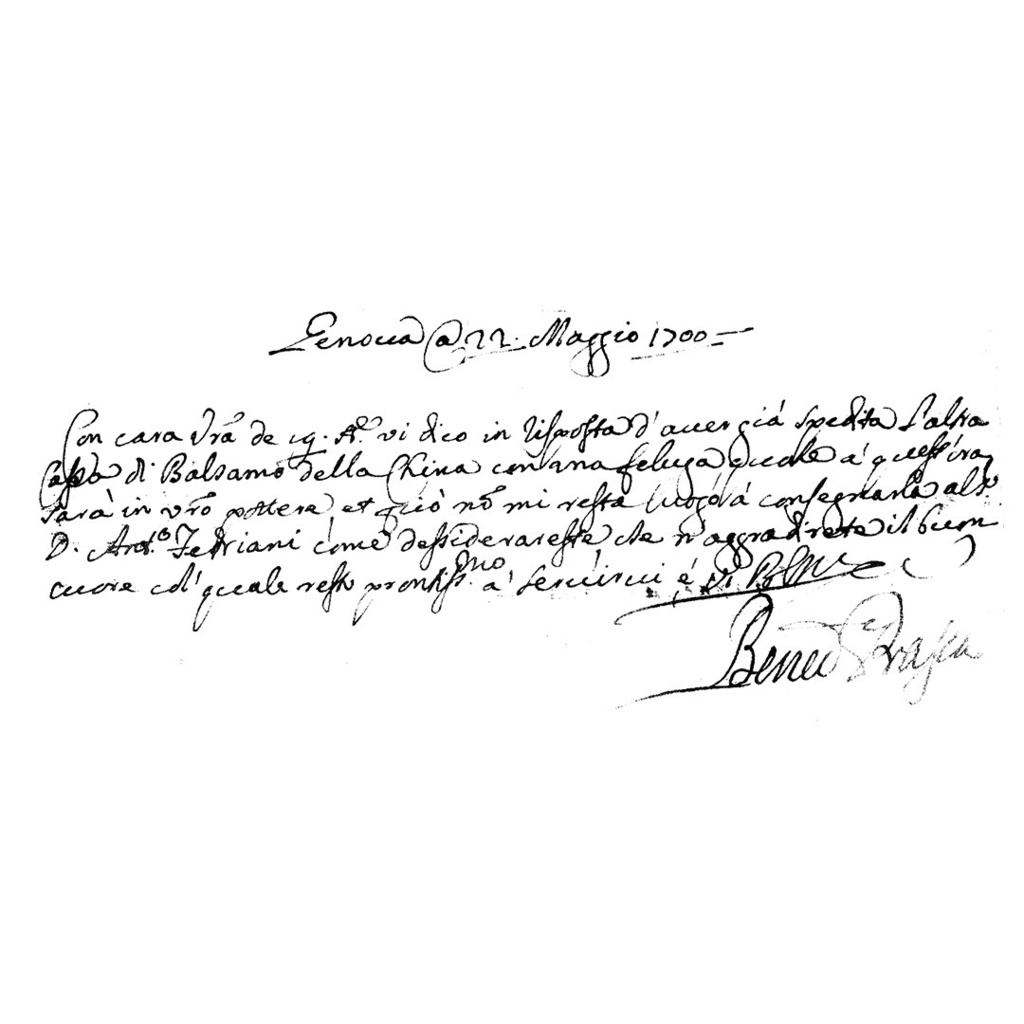 Genova @ 22. Maggio 1700 =
Con cara Vrã de 19. A.º vi dico in risposta d'aver già spedita l'altra
Cassa di Balsamo della China con una feluga quale a quest'ora
sarà in vrõ pottere et perciò nõ mi resta luogo à consegnarla al S.r
D. Ant.º Fedriani come dessiderareste che n'aggradirete il buon
cuore col quale resto prontiss.mo a servirvi é
Bened